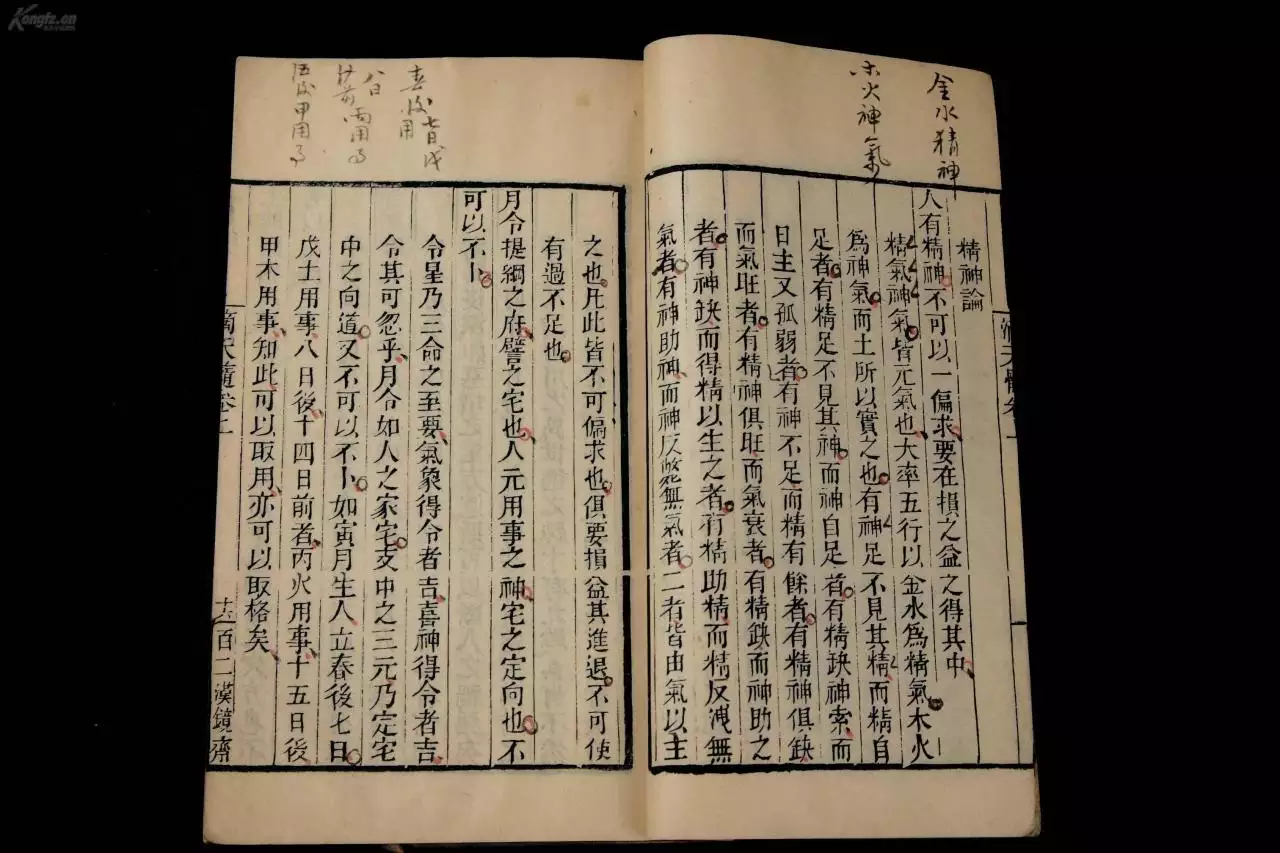 Kongfz.cn
金水精神
木火神氣
精神論
人有精神不可以一偏求要在損之益之得其中
精氣神氣皆元氣也大率五行以金水爲精氣木火
爲神氣而土所以實之也有神足不見其精而精自
足者有精足不見其神而神自足者有精缺神索而
日主又孤弱者有神不足而精有餘者有精神俱缺
而氣旺者有精神俱旺而氣衰者有精缺而神助之
者有神缺而得精以生之者有精助精而精反洩無
氣者有神助神而神反斃無氣者二者皆由氣以主
之也凡此皆不可偏求也俱要損益其進退不可使
有過不足也
月令提綱之府譬之宅也人元用事之神宅之定向也不
可以不卜
令星乃三命之至要氣象得令者吉喜神得令者吉
令其可忽乎月令如人之家宅支中之三元乃定宅
中之向道又不可以不卜如寅月生人立春後七日
戊土用事八日後十四日前者丙火用事十五日後
甲木用事知此可以取用亦可以取格矣
滴天髓卷上
百二漢鏡齋
七日戊
用
八日
前丙用事
後甲用事